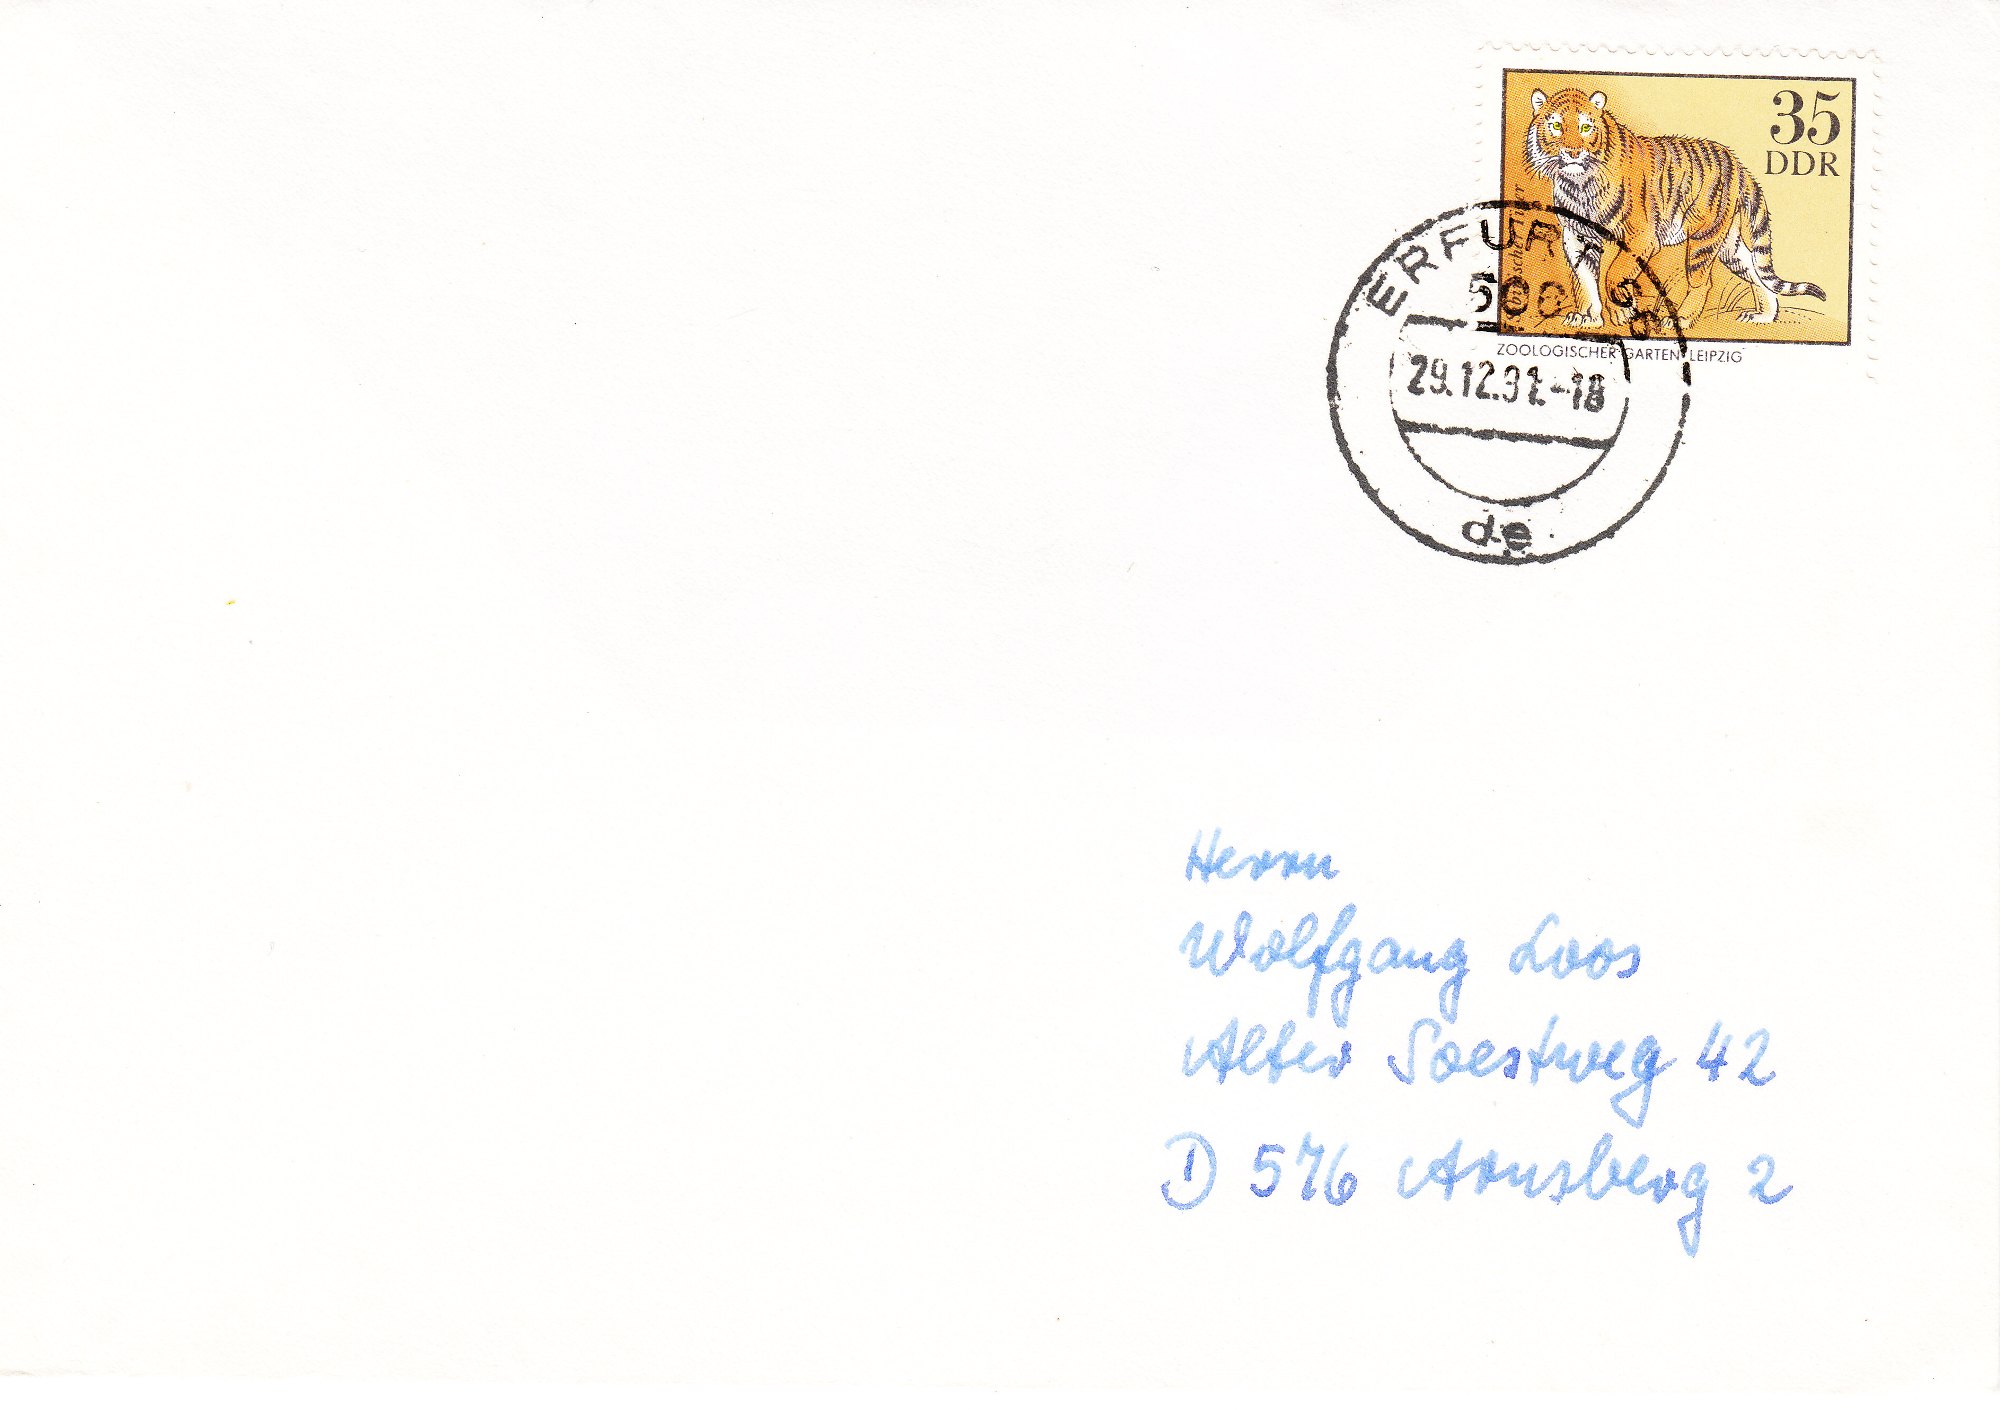 35
DDR
Sibirischer Tiger
ZOOLOGISCHER GARTEN LEIPZIG
ERFURT
29.12.91-18
de
Herrn
Wolfgang Loos
Alter Soestweg 42
D 576 Arnsberg 2